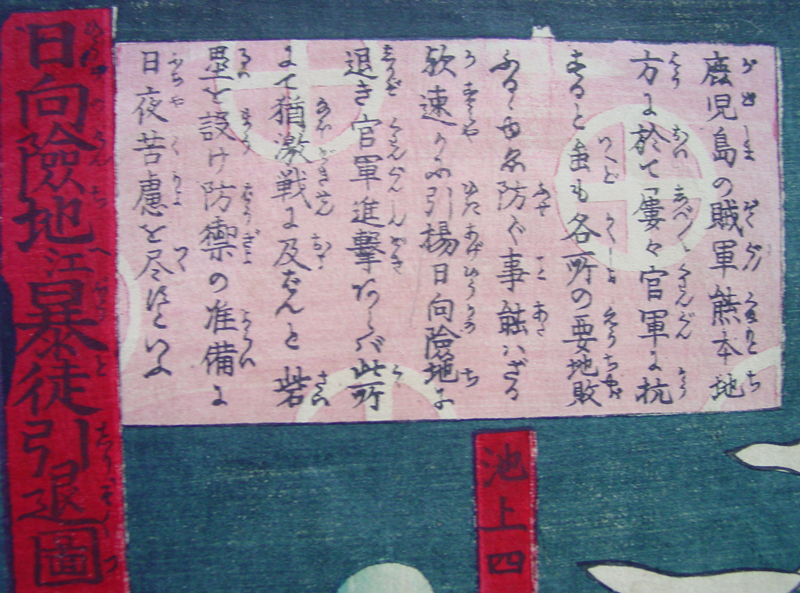 日向險地江暴徒引退圖
鹿児島の賊軍熊本地
方に於て屡々官軍に抗
すると雖も各所の要地敗
防ぐ事能ハざる
速に引揚日向險地に
退き官軍進撃あらバ此所
にて猶激戦に及ばんと砦
塁を設け防禦の准備に
日夜苦慮を尽せしといふ
池上四